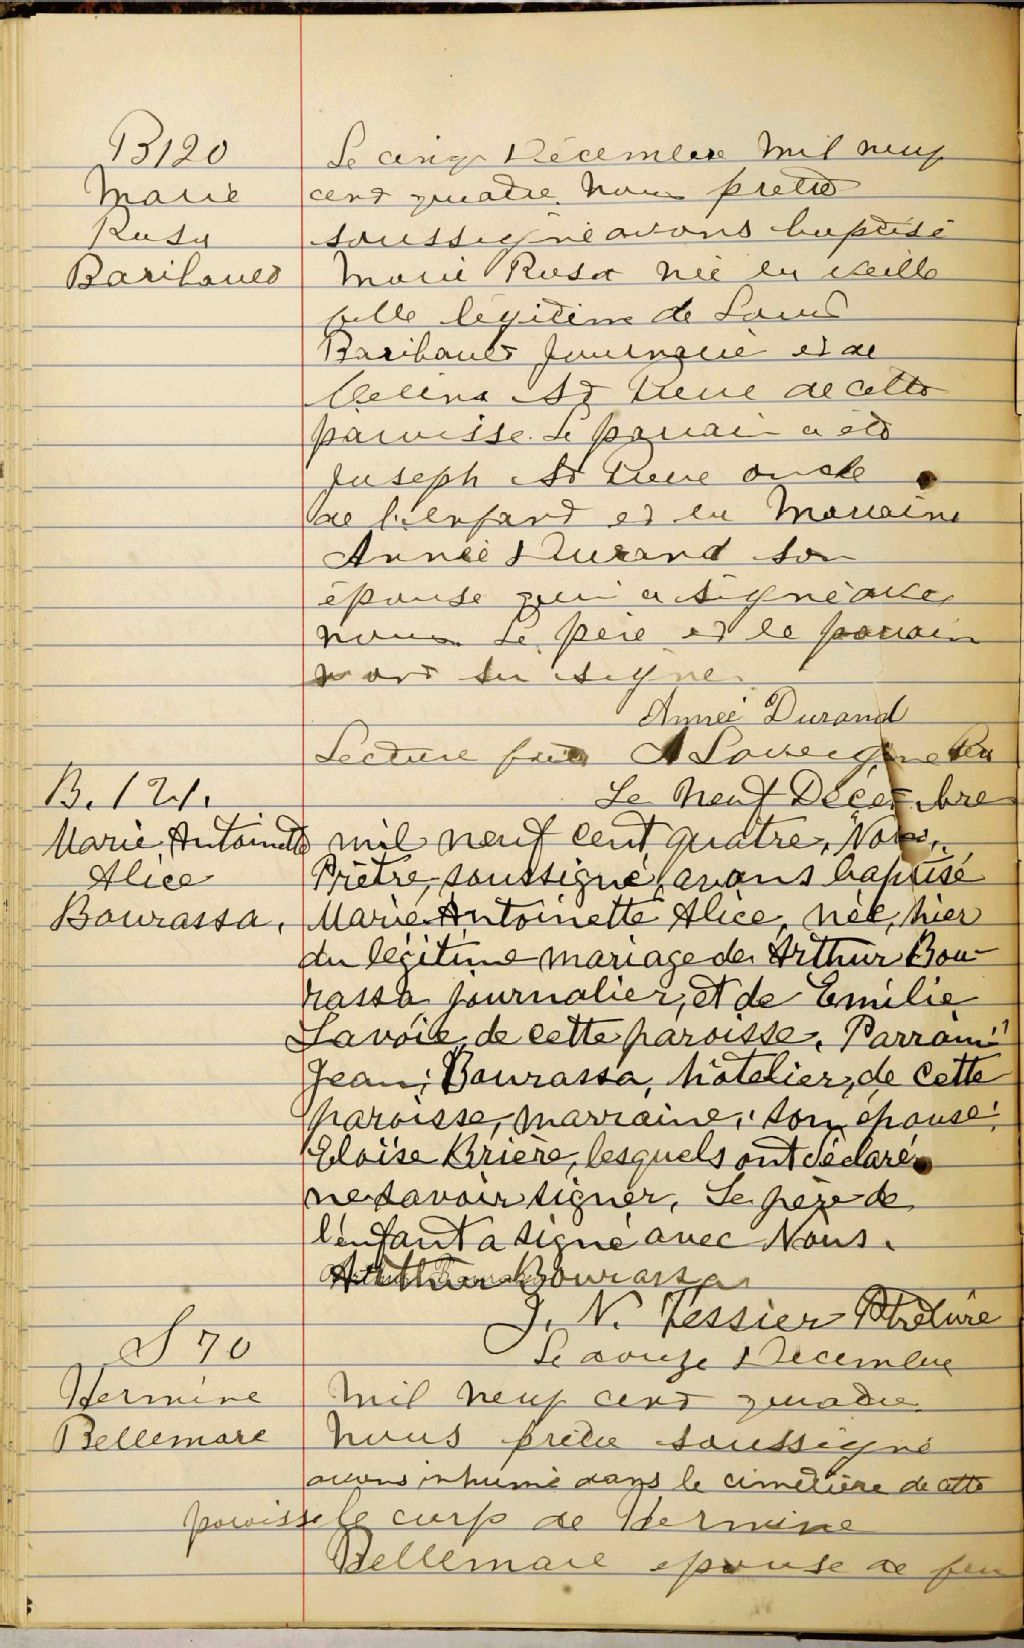 B120
Marie
Rosa
Baribault
Le cinq Décembre mil neuf
cent quatre nous prêtre
soussigné avons baptisé
Marie Rosa née la veille
fille légitime de Louis
Baribault journalier et de
St Pierre de cette
paroisse. Le parrain a été
Joseph St Pierre oncle
de l'enfant et la marraine
Année Durand son
épouse qui a signé avec
nous. Le père et le parrain
n'ont su signer.
Année Durand
Lecture faite
B. 121.
Marie Antoinette
Alice
Bourassa.
Le neuf Décembre
mil neuf cent quatre, Nous,
Prêtre, soussigné, avons baptisé
Marie Antoinette Alice, née, hier
du légitime mariage de Arthur Bou-
rassa journalier, et de Emilie
Lavoie, de cette paroisse. Parrain:
Jean; Bourassa, hôtelier, de cette
paroisse, marraine, son épouse:
Eloïse Brière, lesquels ont déclaré
ne savoir signer. Le père de
l'enfant a signé avec Nous.
Arthur Bourassa
J. N. Tessier
S 70
Hermine
Bellemare
Le douze Décembre
mil neuf cent quatre
nous prêtre soussigné
avons inhumé dans le cimetière de cette
paroisse le corp de Hermine
Bellemare épouse de feu